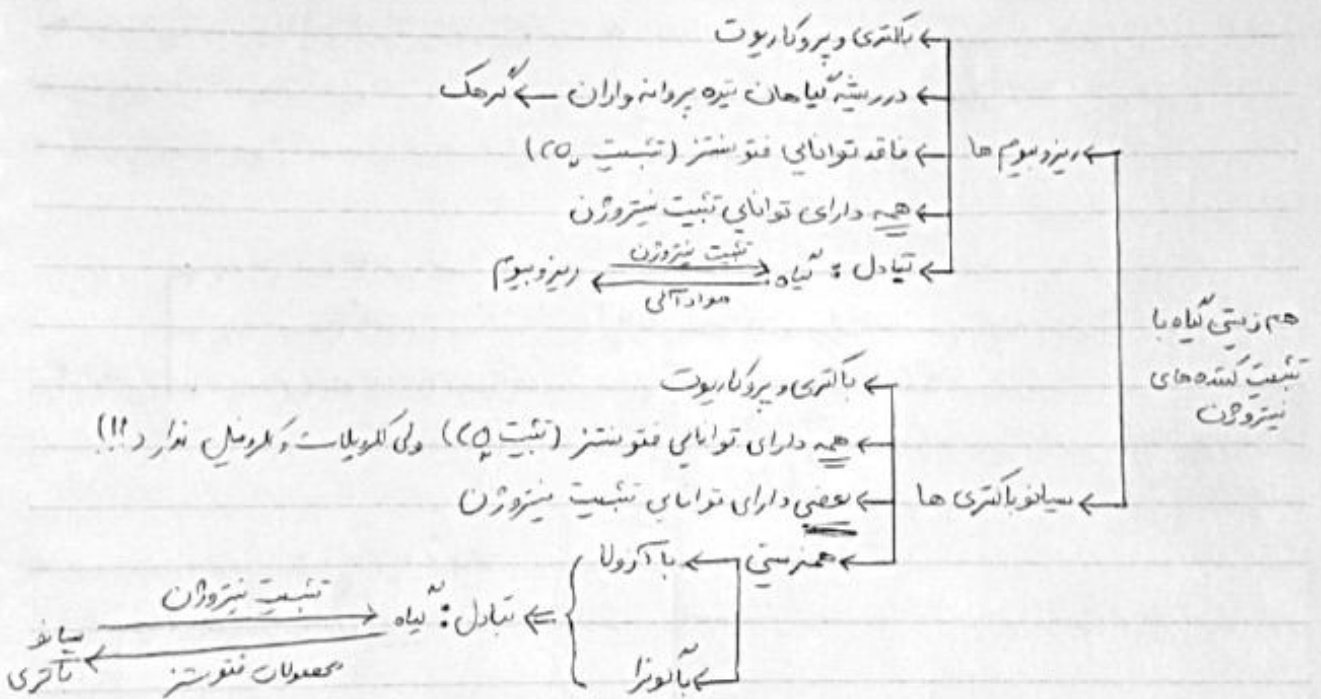 هم زیستی گیاه با
تثبیت کننده های
نیتروژن
ریزوبیوم ها
باکتری و پروکاریوت
در ریشه گیاهان تیره پروانه واران ← گرهک
فاقد توانایی فتوسنتز (تثبیت CO₂)
همه دارای توانایی تثبیت نیتروژن
تبادل : گیاه تثبیت نیتروژن مواد آلی ریزوبیوم
سیانوباکتری ها
باکتری و پروکاریوت
همه دارای توانایی فتوسنتز (تثبیت CO₂) ولی کلروپلاست و کلروفیل ندارد (!!)
بعضی دارای توانایی تثبیت نیتروژن
همزیستی
با آزولا
با گونرا
تبادل : گیاه تثبیت نیتروژن محصولات فتوسنتز سیانو
باکتری